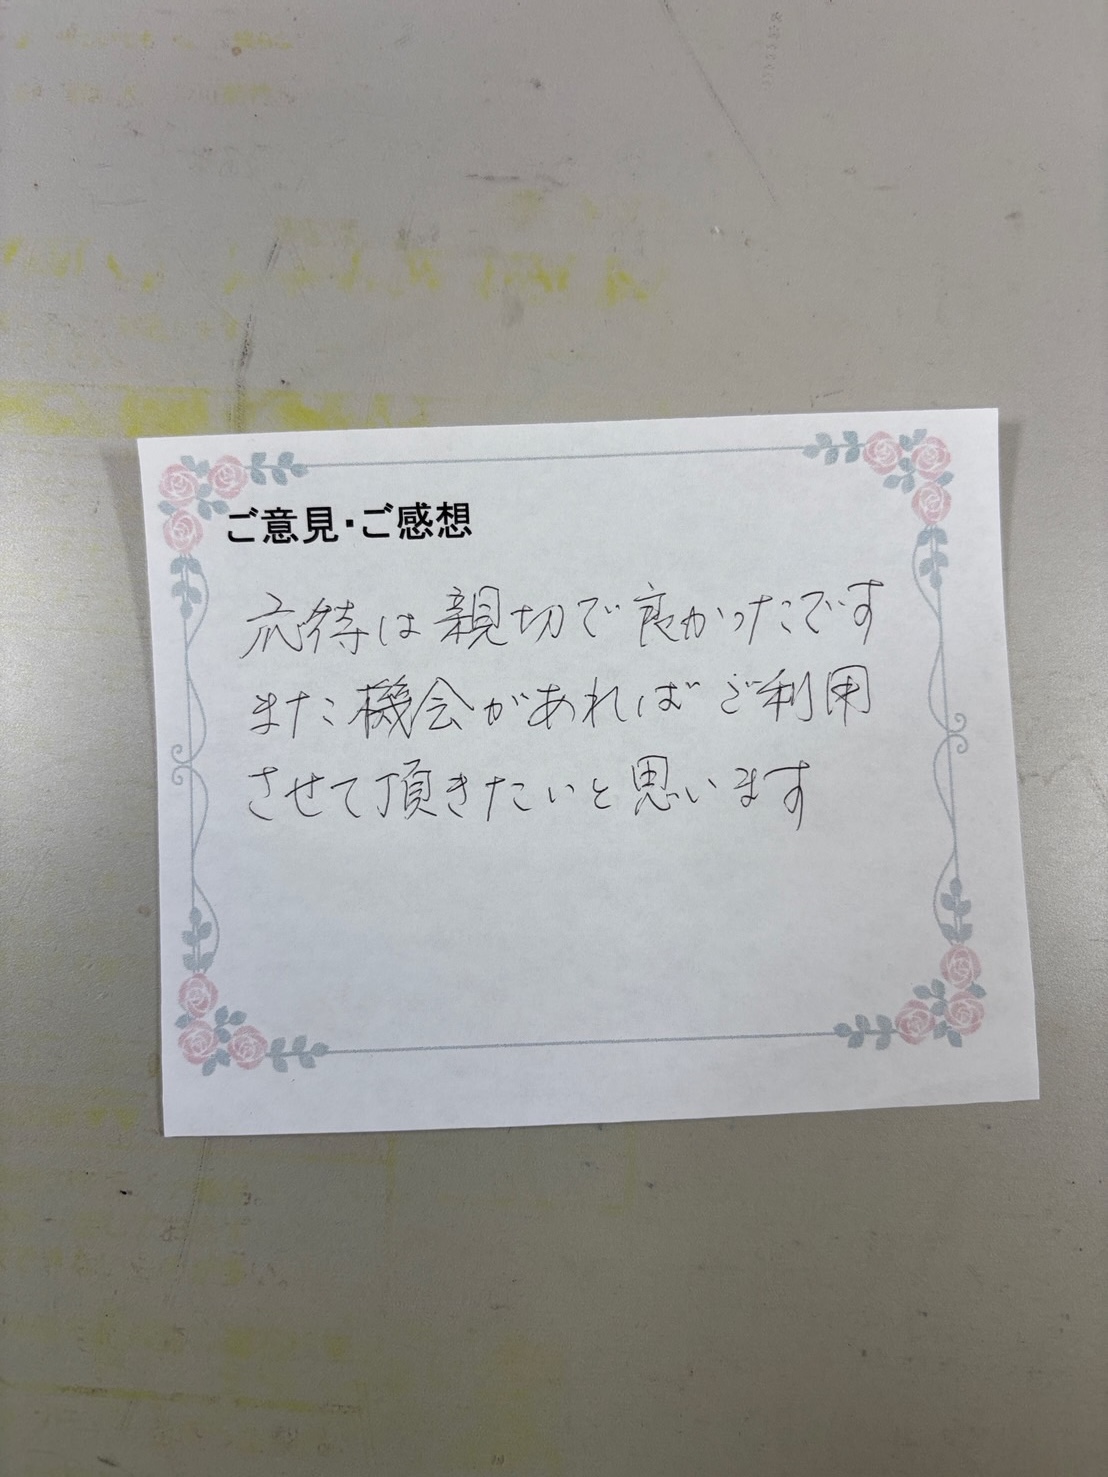 ご意見・ご感想
応待は親切で良かったです
また機会があればご利用
させて頂きたいと思います